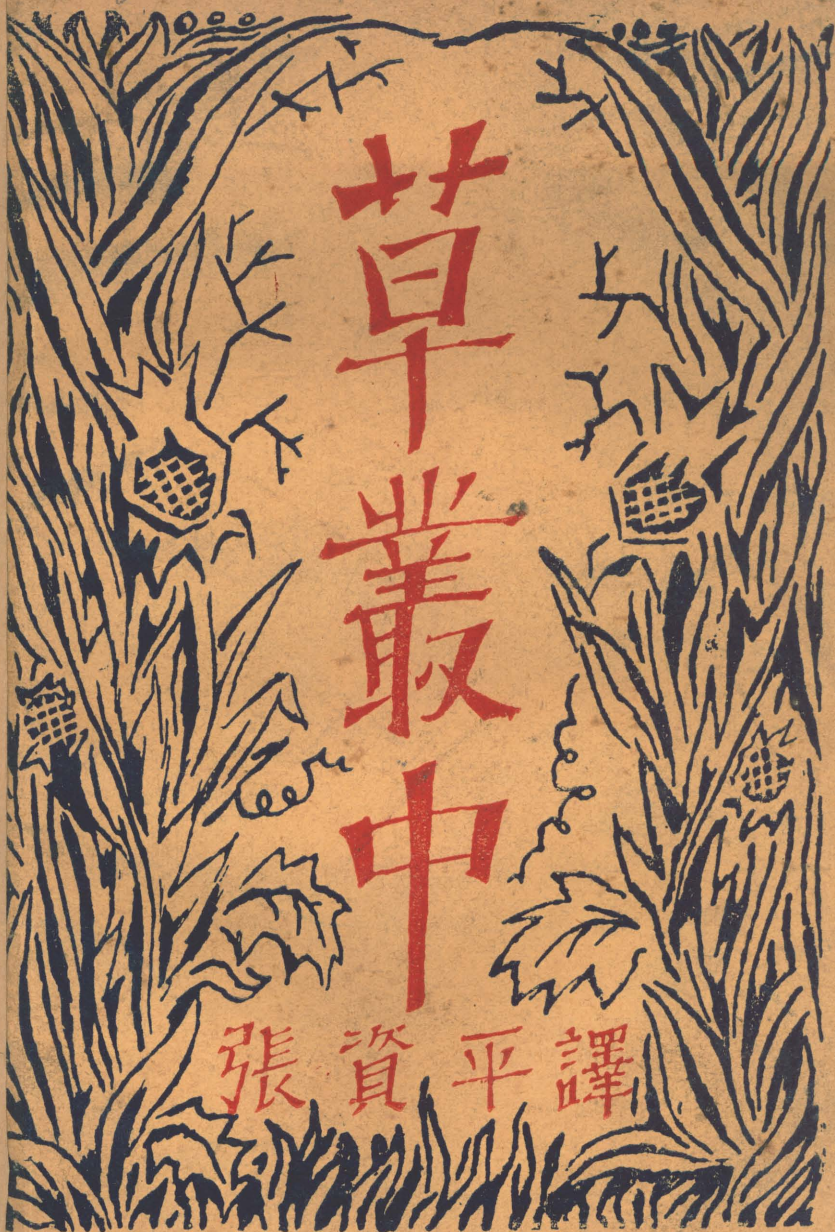 草叢中
張資平譯